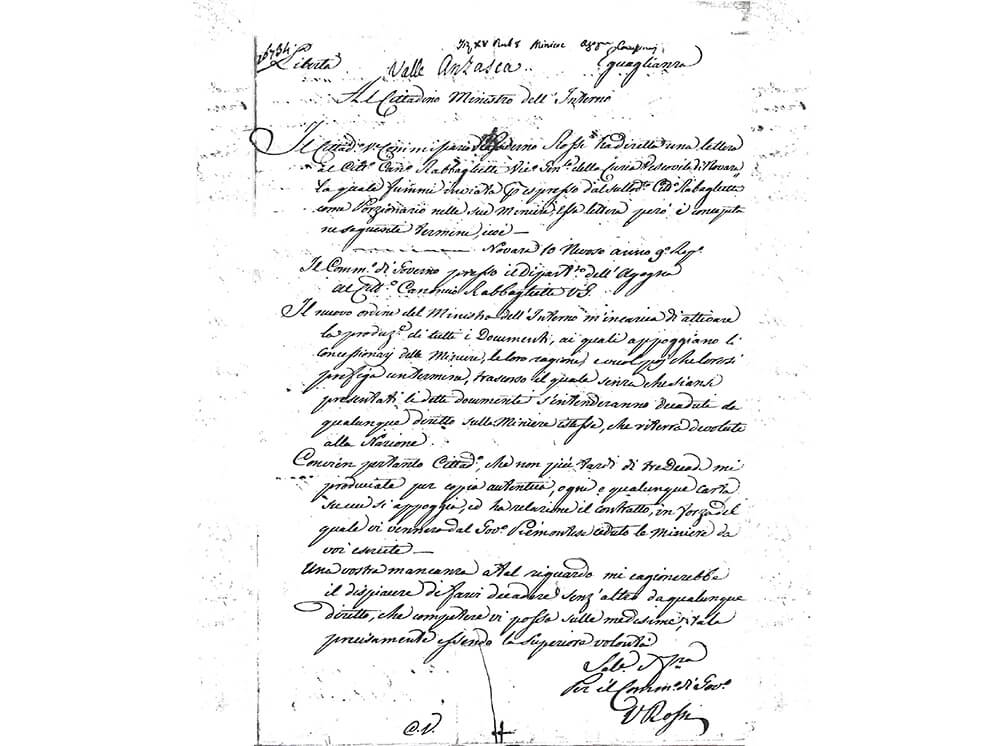 Miniere Agogna
16734 Libertà Valle Anzasca Eguaglianza
Al Cittadino Ministro dell' Interno
Il Cittad.º V.º Commissario Governo Rossi ha diretta una lettera
al Citt.º Can.º Rabbaglietti Vic.º Gen.le della Curia Vescovile di Novara
la quale fummi inviata per espresso dal sud.º Citt.º Rabaglietti
come Porzionario nelle sue Miniere, essa lettera però è concepita
ne seguente termine, cioè —
Novara 10 Nevoso anno 9.º Rep.º
Il Comm.º di Governo presso il Dipart.to dell' Agogna
al Citt.º Canonico Rabbagliette V. G.
Il nuovo ordine del Ministro dell' Interno m'incarica di attivare
la produz.e di tutti i Documenti, ai quali appoggiano li
Concessionarj delle Miniere, le loro ragioni, e vuol poi che loro si
prefiga un termine, trascorso il quale senza che siansi
presentati li detti documenti s'intenderanno decaduti da
qualunque diritto sulle Miniere istesse, che riterrà devolute
alla Nazione
Convien pertanto Cittad.º, che non più tardi di tre Decadi mi
produciate per copia autentica, ogni e qualunque carta
su cui si appoggia, ed ha relazione il contratto, in forza del
quale vi vennero dal Gov.º Piemontese cedute le Miniere da
voi esercite —
Una vostra mancanza a tal riguardo mi cagionerebbe
il dispiacere di farvi decadere senz' altro da qualunque
diritto, che competere vi possa sulle medesime, tale
precisamente essendo la superiore volontà
Per il Comm.º di Gov.º
V Rossi
C. V.